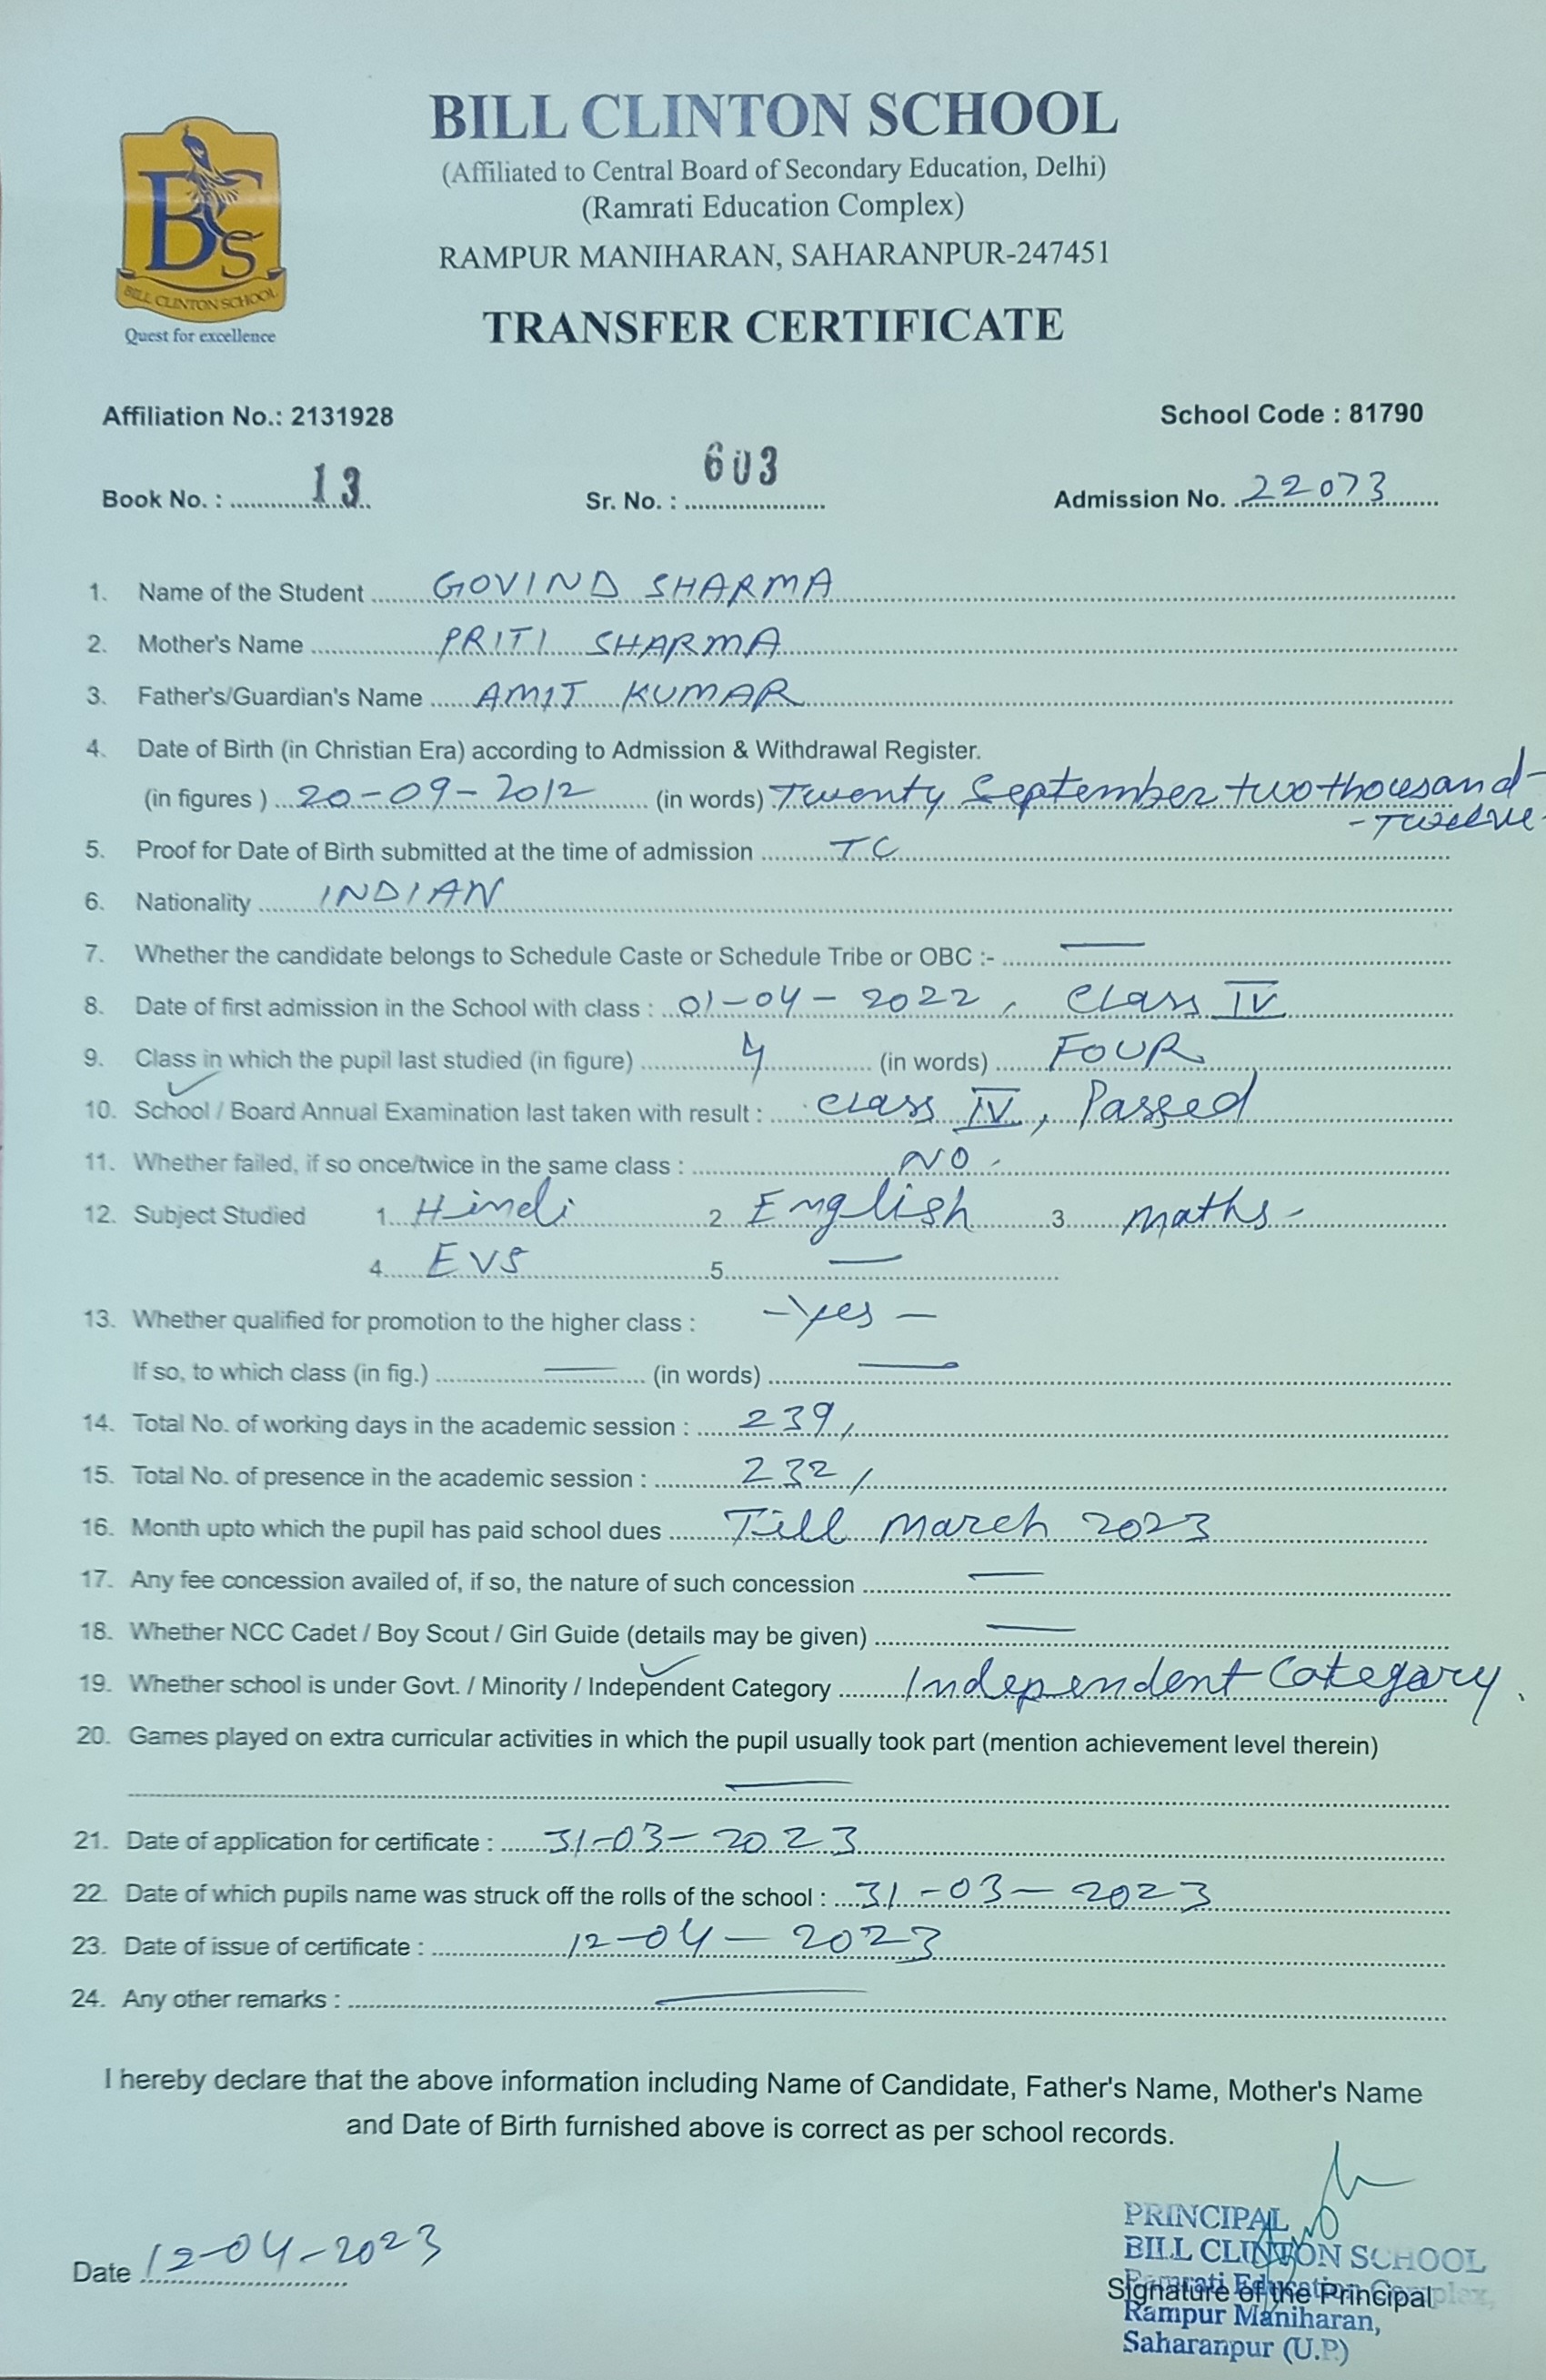 BILL CLINTON SCHOOL
(Affiliated to Central Board of Secondary Education, Delhi)
(Ramrati Education Complex)
RAMPUR MANIHARAN, SAHARANPUR-247451
BCS
BILL CLINTON SCHOOL
Quest for excellence
TRANSFER CERTIFICATE
Affiliation No.: 2131928 School Code : 81790
Book No. : 13 Sr. No. : 603 Admission No. 22073
1. Name of the Student GOVIND SHARMA
2. Mother's Name PRITI SHARMA
3. Father's/Guardian's Name AMIT KUMAR
4. Date of Birth (in Christian Era) according to Admission & Withdrawal Register.
(in figures ) 20-09-2012 (in words) Twenty September two thousand-
-Twelve-
5. Proof for Date of Birth submitted at the time of admission TC
6. Nationality INDIAN
7. Whether the candidate belongs to Schedule Caste or Schedule Tribe or OBC :- —
8. Date of first admission in the School with class : 01-04-2022, Class IV
9. Class in which the pupil last studied (in figure) 4 (in words) FOUR
10. School / Board Annual Examination last taken with result : Class IV, Passed
11. Whether failed, if so once/twice in the same class : NO-
12. Subject Studied 1. Hindi 2. English 3. maths-
4. EVS 5. —
13. Whether qualified for promotion to the higher class : -Yes-
If so, to which class (in fig.) — (in words) —
14. Total No. of working days in the academic session : 239/
15. Total No. of presence in the academic session : 232/
16. Month upto which the pupil has paid school dues Till March 2023
17. Any fee concession availed of, if so, the nature of such concession —
18. Whether NCC Cadet / Boy Scout / Girl Guide (details may be given) —
19. Whether school is under Govt. / Minority / Independent Category Independent Category.
20. Games played on extra curricular activities in which the pupil usually took part (mention achievement level therein)
—
21. Date of application for certificate : 31-03-2023
22. Date of which pupils name was struck off the rolls of the school : 31-03-2023
23. Date of issue of certificate : 12-04-2023
24. Any other remarks : —
I hereby declare that the above information including Name of Candidate, Father's Name, Mother's Name
and Date of Birth furnished above is correct as per school records.
Date 12-04-2023
PRINCIPAL
BILL CLINTON SCHOOL
Ramrati Education Complex,
Signature of the Principal
Rampur Maniharan,
Saharanpur (U.P.)